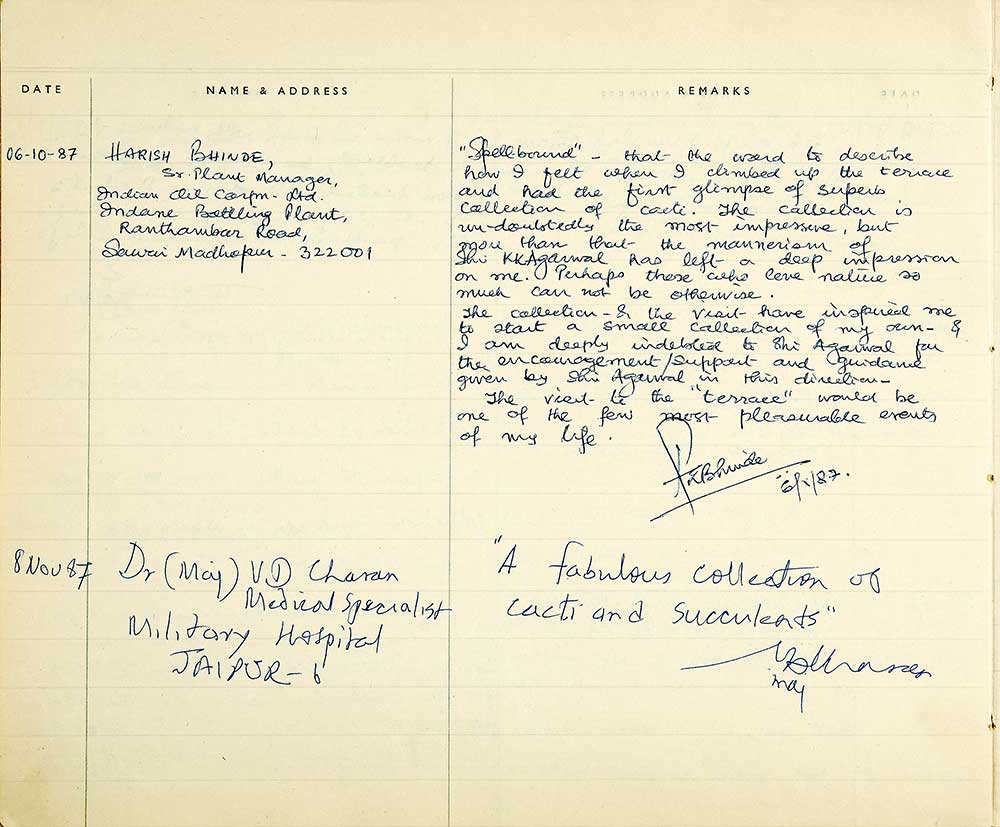 DATE
NAME & ADDRESS
REMARKS
06-10-87
HARISH BHINDE,
Sr. Plant Manager,
Indian Oil Corpn. Ltd.
Indane Bottling Plant,
Ranthambar Road,
Sawai Madhopur - 322001
"Spellbound" - that the word to describe
how I felt when I climbed up the terrace
and had the first glimpse of superb
collection of cacti. The collection is
un-doubtedly the most impressive, but
more than that the mannerism of
Shri KKAgarwal has left a deep impression
on me. Perhaps those who love nature so
much can not be otherwise.
The collection - & the visit have inspired me
to start a small collection of my own - &
I am deeply indebted to Shri Agarwal for
the encouragement/support and guidance
given by Shri Agarwal in this direction -
The visit to the "terrace" would be
one of the few most pleasurable events
of my life.
Bhinde
6/x/87.
8 Nov 87
Dr (Maj) V.D Charan
Medical Specialist
Military Hospital
JAIPUR - 6
"A fabulous collection of
cacti and succulents"
VDCharan
Maj